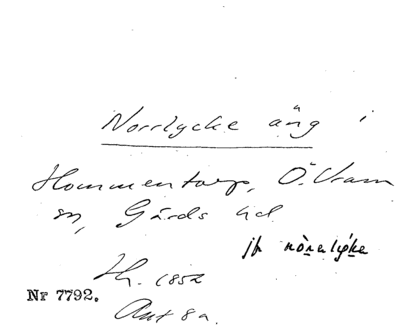 Norrlycke äng i
Hommentorp, Ö. Vram
sn, Gärds hd
jfr nòrelýke
Hy. 1852
Nr 7792.
Akt 8a.